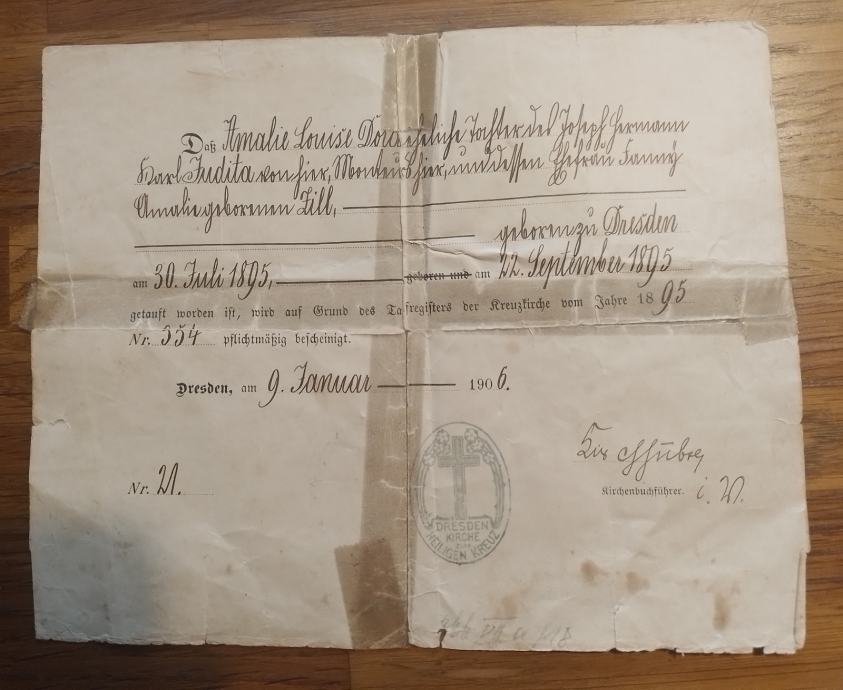 Daß Amalie Louise Dora eheliche Tochter des Joseph Hermann
Karl Judita von hier, Monteurs hier, und dessen Ehefrau Fanny
Amalie geborenen Zill,
geboren zu Dresden
am 30. Juli 1895, geboren und am 22. September 1895
getauft worden ist, wird auf Grund des Taufregisters der Kreuzkirche vom Jahre 1895
Nr. 554 pflichtmäßig bescheinigt.
Dresden, am 9. Januar 1906.
Nr. 21.
Kirchenbuchführer. i. V.
DRESDEN
KIRCHE
ZUM
HEILIGEN KREUZ